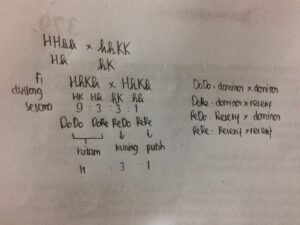 HHkk x hhKK
Hk hK
F1
HhKk x HhKk
disilang
sesama
HK Hk hK hk
9 : 3 : 3 : 1
DoDo DoRe ReDo ReRe
hitam kuning putih
: 3 : 1
DoDo : dominan x dominan
DoRe : dominan x resesif
ReDo : Resesif x dominan
ReRe : Resesif x resesif